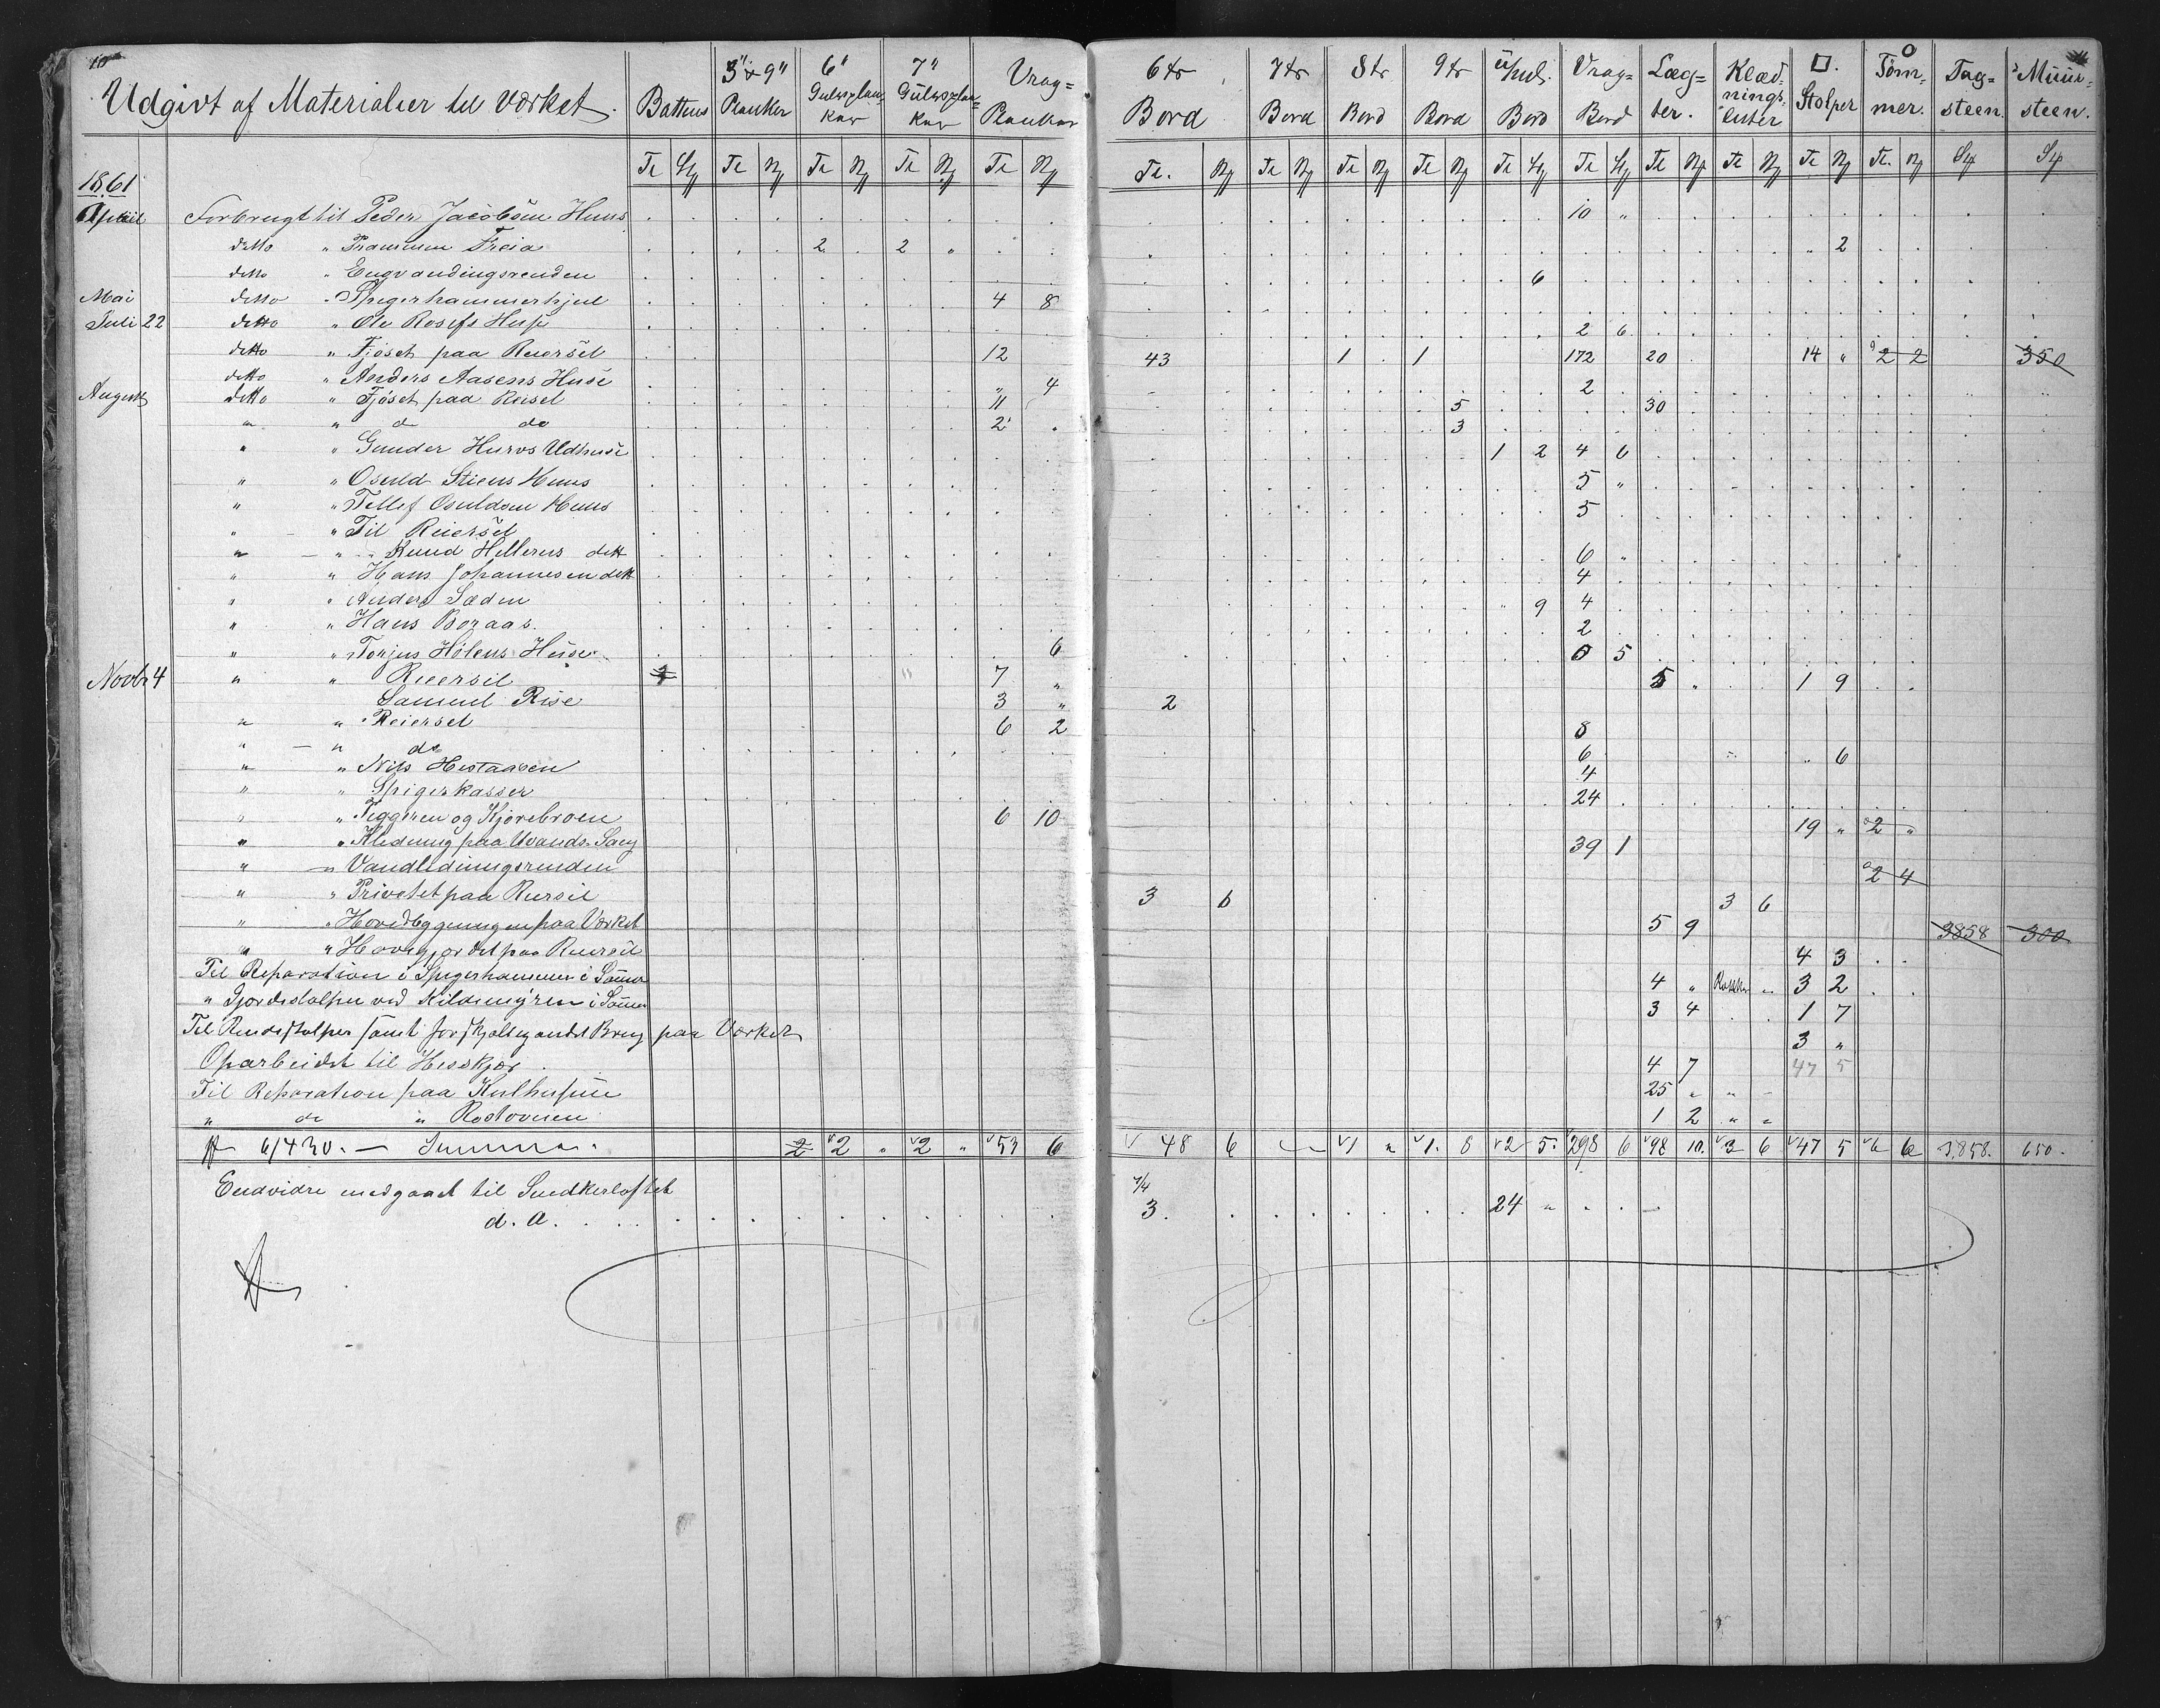 10
Udgivt af Materialier til Værket. Battens 3" x 9" Planker 6" Gulvsplanker 7" Gulvsplanker Vrag= Planker 6tr Bord 7tr Bord 8tr Bord 9tr Bord Bord Vrag= Bord Læg= ter. Klædnings= lister □. Stolper O Tøm= mer. Tag= steen. Muur= steen.
Tr Tr Tr Tr Tr Tr. Tr Tr Tr Tr Tr Tr Tr Tr Tr. St St
1861
April Forbrugt til Peder Jacobsens Huus 10 "
ditto " Prammen Freia 2 . 2 " " 2
ditto " Engvandingsrenden 6
Mai ditto " Spigerhammerhjul 4 8
Juli 22 ditto " Ole Rosefs Huse 2 6
ditto " Fjøset paa Reiersel 12 43 1 . 1 172 20 14 " 2 2 350
ditto " Anders Aasens Huse " 4 2
August ditto " Fjøset paa Reisel 11 5 30
" " d do 2 . 3
" " Gunder Hurvs Udhuse 1 2 4 6
" " Osuld Stiens Huus 5 "
" " Tellef Osuldsen Huus 5
" " Til Reiersel
" " Knud Hellerns dett 6 "
" " Hans Johannesen dett 4
" " Anders Sæden " 9 4
" " Hans Boraas. 2
" " Torjus Hølens Huse 6 0 5
Novbr 4 " " Reiersel 1 7 " 5 " 1 9
Samuel Rise 3 " 2
" " Reiersel 6 2 8
" " do 6 " 6
" " Nils Hestaasen 4
" " Spigerkasser 24
" " Teggeren og Kjørebroen 6 10 19 " 2 "
" " Klædning paa Uvands Saug 39 1
" " Vandledningsrenden 2 4
" " Privetet paa Reiersel 3 6 3 6
" " Hovedbygningen paa Værket 5 9 3858 300
" " Havegjordet paa Reiersel 4 3
Til Reparation i Spigerhammer i Sommer 4 " " 3 2
" Gjordestolper ved i Sommer 3 4 1 7
Til Rendestolper samt forskjelligandet Brug paa Værket 3 "
Oparbeidet til Hesskjør 4 7 47 5
Til Reparation paa Kulhusene 25 " " -
" do " Rostovnen 1 2 " "
6/430. — Summa. 2 2 " 2 " 53 6 48 6 1 " 1. 8 2 5. 298 6 98 10. 3 6 47 5 6 6 3,858. 650.
Endvidre medgaaet til Snedkerloftet
d. A. 3. 24 "